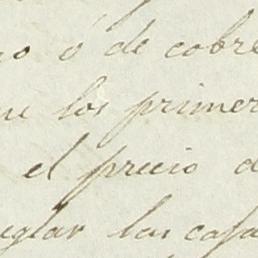 ó de cobre
los primer
el precio d
eglar las casa